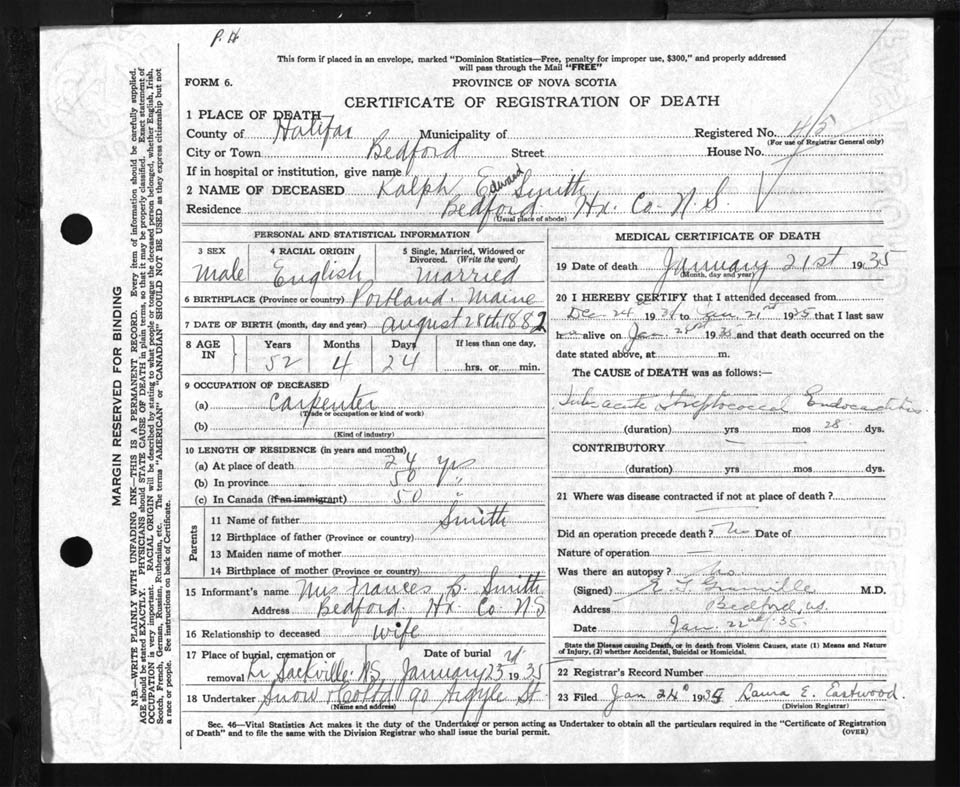 P. H
This form if placed in an envelope, marked "Dominion Statistics—Free, penalty for improper use, $300," and properly addressed
will pass through the Mail "FREE"
FORM 6.
PROVINCE OF NOVA SCOTIA
CERTIFICATE OF REGISTRATION OF DEATH
1 PLACE OF DEATH
County of Halifax Municipality of Registered No. 415
(For use of Registrar General only)
City or Town Bedford Street House No.
If in hospital or institution, give name
2 NAME OF DECEASED Ralph Edward Smith
Residence Bedford. Hx. Co. N.S.
(Usual place of abode)
PERSONAL AND STATISTICAL INFORMATION
3 SEX Male
4 RACIAL ORIGIN English
5 Single, Married, Widowed or
Divorced. (Write the word)
Married
6 BIRTHPLACE (Province or country) Portland. Maine
7 DATE OF BIRTH (month, day and year) August 28th 1882
8 AGE IN Years 52 Months 4 Days 24 If less than one day,
hrs. or min.
9 OCCUPATION OF DECEASED
(a) Carpenter
(Trade or occupation or kind of work)
(b)
(Kind of industry)
10 LENGTH OF RESIDENCE (in years and months)
(a) At place of death 24 yrs
(b) In province 50 "
(c) In Canada (if an immigrant) 50 "
Parents
11 Name of father Smith
12 Birthplace of father (Province or country)
13 Maiden name of mother
14 Birthplace of mother (Province or country)
15 Informant's name Mrs Frances B. Smith
Address Bedford Hx. Co. N.S
16 Relationship to deceased wife
17 Place of burial, cremation or Date of burial
removal Lr Sackville. N.S. January 23rd 1935
18 Undertaker Snow & Co Ltd 90 Argyle St
(Name and address)
MEDICAL CERTIFICATE OF DEATH
19 Date of death January 21st 1935
(Month, day and year)
20 I HEREBY CERTIFY that I attended deceased from
Dec. 24th 1934 to Jan. 21st 1935 that I last saw
h alive on Jan 21st 1935 and that death occurred on the
date stated above, at m.
The CAUSE of DEATH was as follows:—
Sub-acute Streptococcal Endocarditis
(duration) yrs mos 28 dys.
CONTRIBUTORY
(duration) yrs mos dys.
21 Where was disease contracted if not at place of death?
Did an operation precede death? No Date of
Nature of operation —
Was there an autopsy? No
(Signed) M.D.
Address Bedford, N.S.
Date Jan. 22nd 35.
State the Disease causing Death, or in death from Violent Causes, state (1) Means and Nature
of Injury, (2) whether Accidental, Suicidal or Homicidal.
22 Registrar's Record Number
23 Filed Jan 24th 1935 Laura E. Eastwood.
(Division Registrar)
Sec. 46—Vital Statistics Act makes it the duty of the Undertaker or person acting as Undertaker to obtain all the particulars required in the "Certificate of Registration
of Death" and to file the same with the Division Registrar who shall issue the burial permit.
(OVER)
MARGIN RESERVED FOR BINDING
N.B.—WRITE PLAINLY WITH UNFADING INK—THIS IS A PERMANENT RECORD. Every item of information should be carefully supplied.
AGE should be stated EXACTLY. PHYSICIANS should STATE CAUSE OF DEATH in plain terms, so that it may be properly classified. Exact statement of
OCCUPATION is very important. RACIAL ORIGIN will be described by stating to what people or tongue the deceased person belonged, whether English, Irish,
Scotch, French, German, Russian, Ruthenian, etc. The terms "AMERICAN" or "CANADIAN" SHOULD NOT BE USED as they express citizenship but not
a race or people. See instructions on back of Certificate.